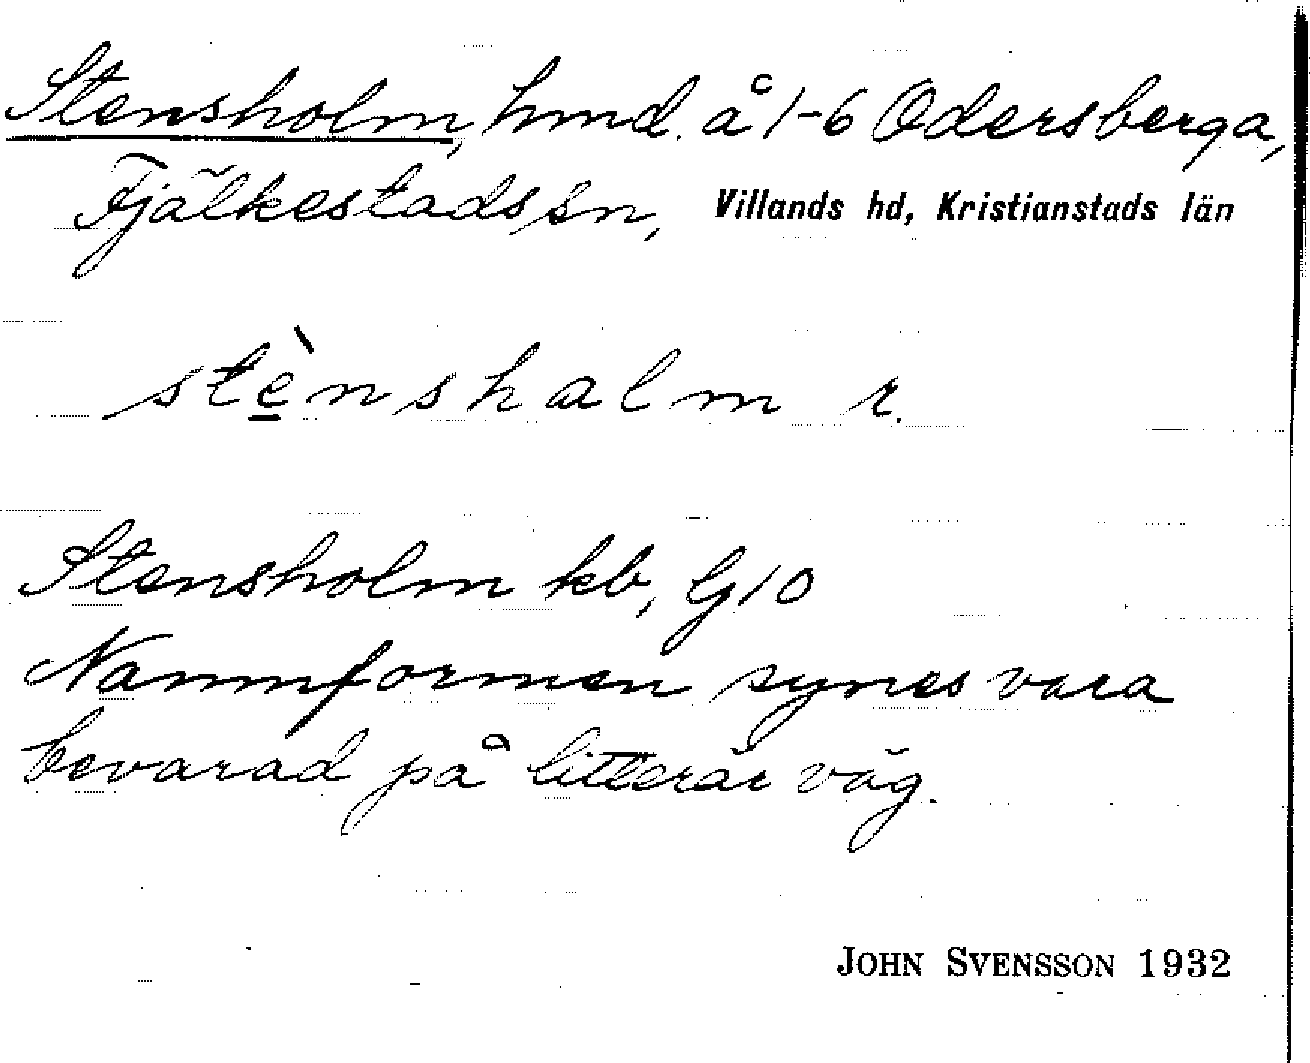 Stensholm, hmd. å 1-6 Odersberga,
Fjälkestads sn, Villands hd, Kristianstads län
stènshalm r.
Stensholm kb, G10
Namnformen synes vara
bevarad på litterär väg.
JOHN SVENSSON 1932